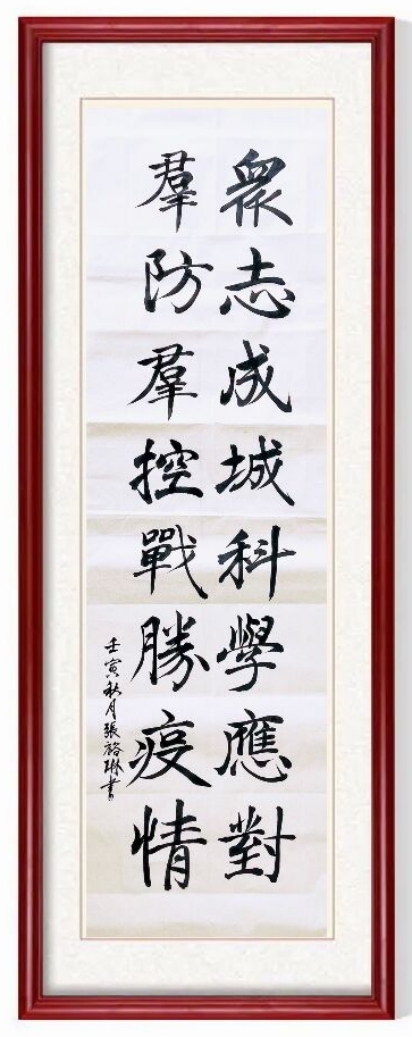 眾志成城科學應對
羣防羣控戰勝疫情
壬寅秋月張裕琳書